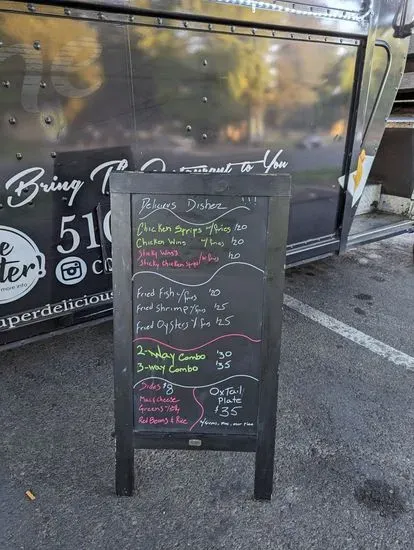 Bring The Restaurant to You
510
er!
more info
uperdelicious
Delicius Dishez !!!
Chicken Strips w/fries $20
Chicken Wins w/fries $20
Sticky Wins $20
Sticky Chicken Strips w/fries $20
Fried Fish w/fries $20
Fried Shrimp w/fries $25
Fried Oysters w/fries $25
2-Way Combo $30
3-way Combo $35
Sides $8
Mac & Cheese
Greens
Red Beans & Rice
OxTail
Plate
$35